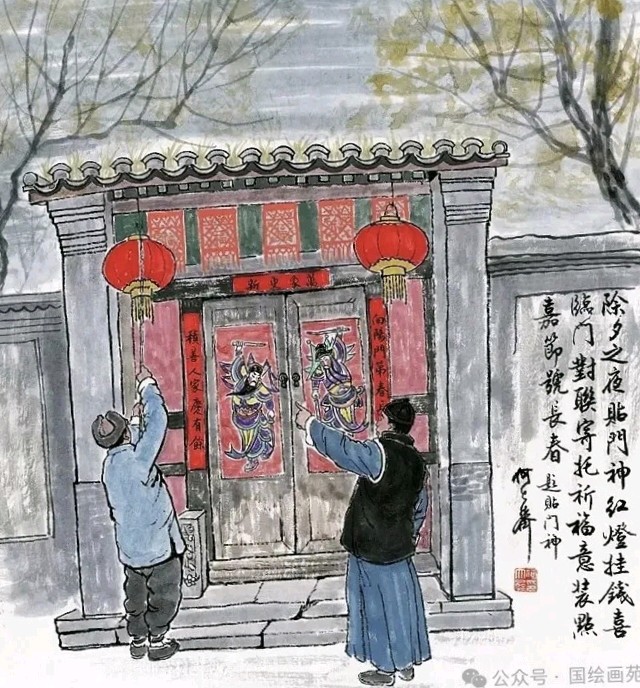 萬象更新
向陽門第春
積善人家慶有餘
除夕之夜貼門神紅燈挂錢喜
臨门對聯寄托祈福意裝點
嘉節號長春
題貼门神
何大齊
公众号 · 国绘画苑